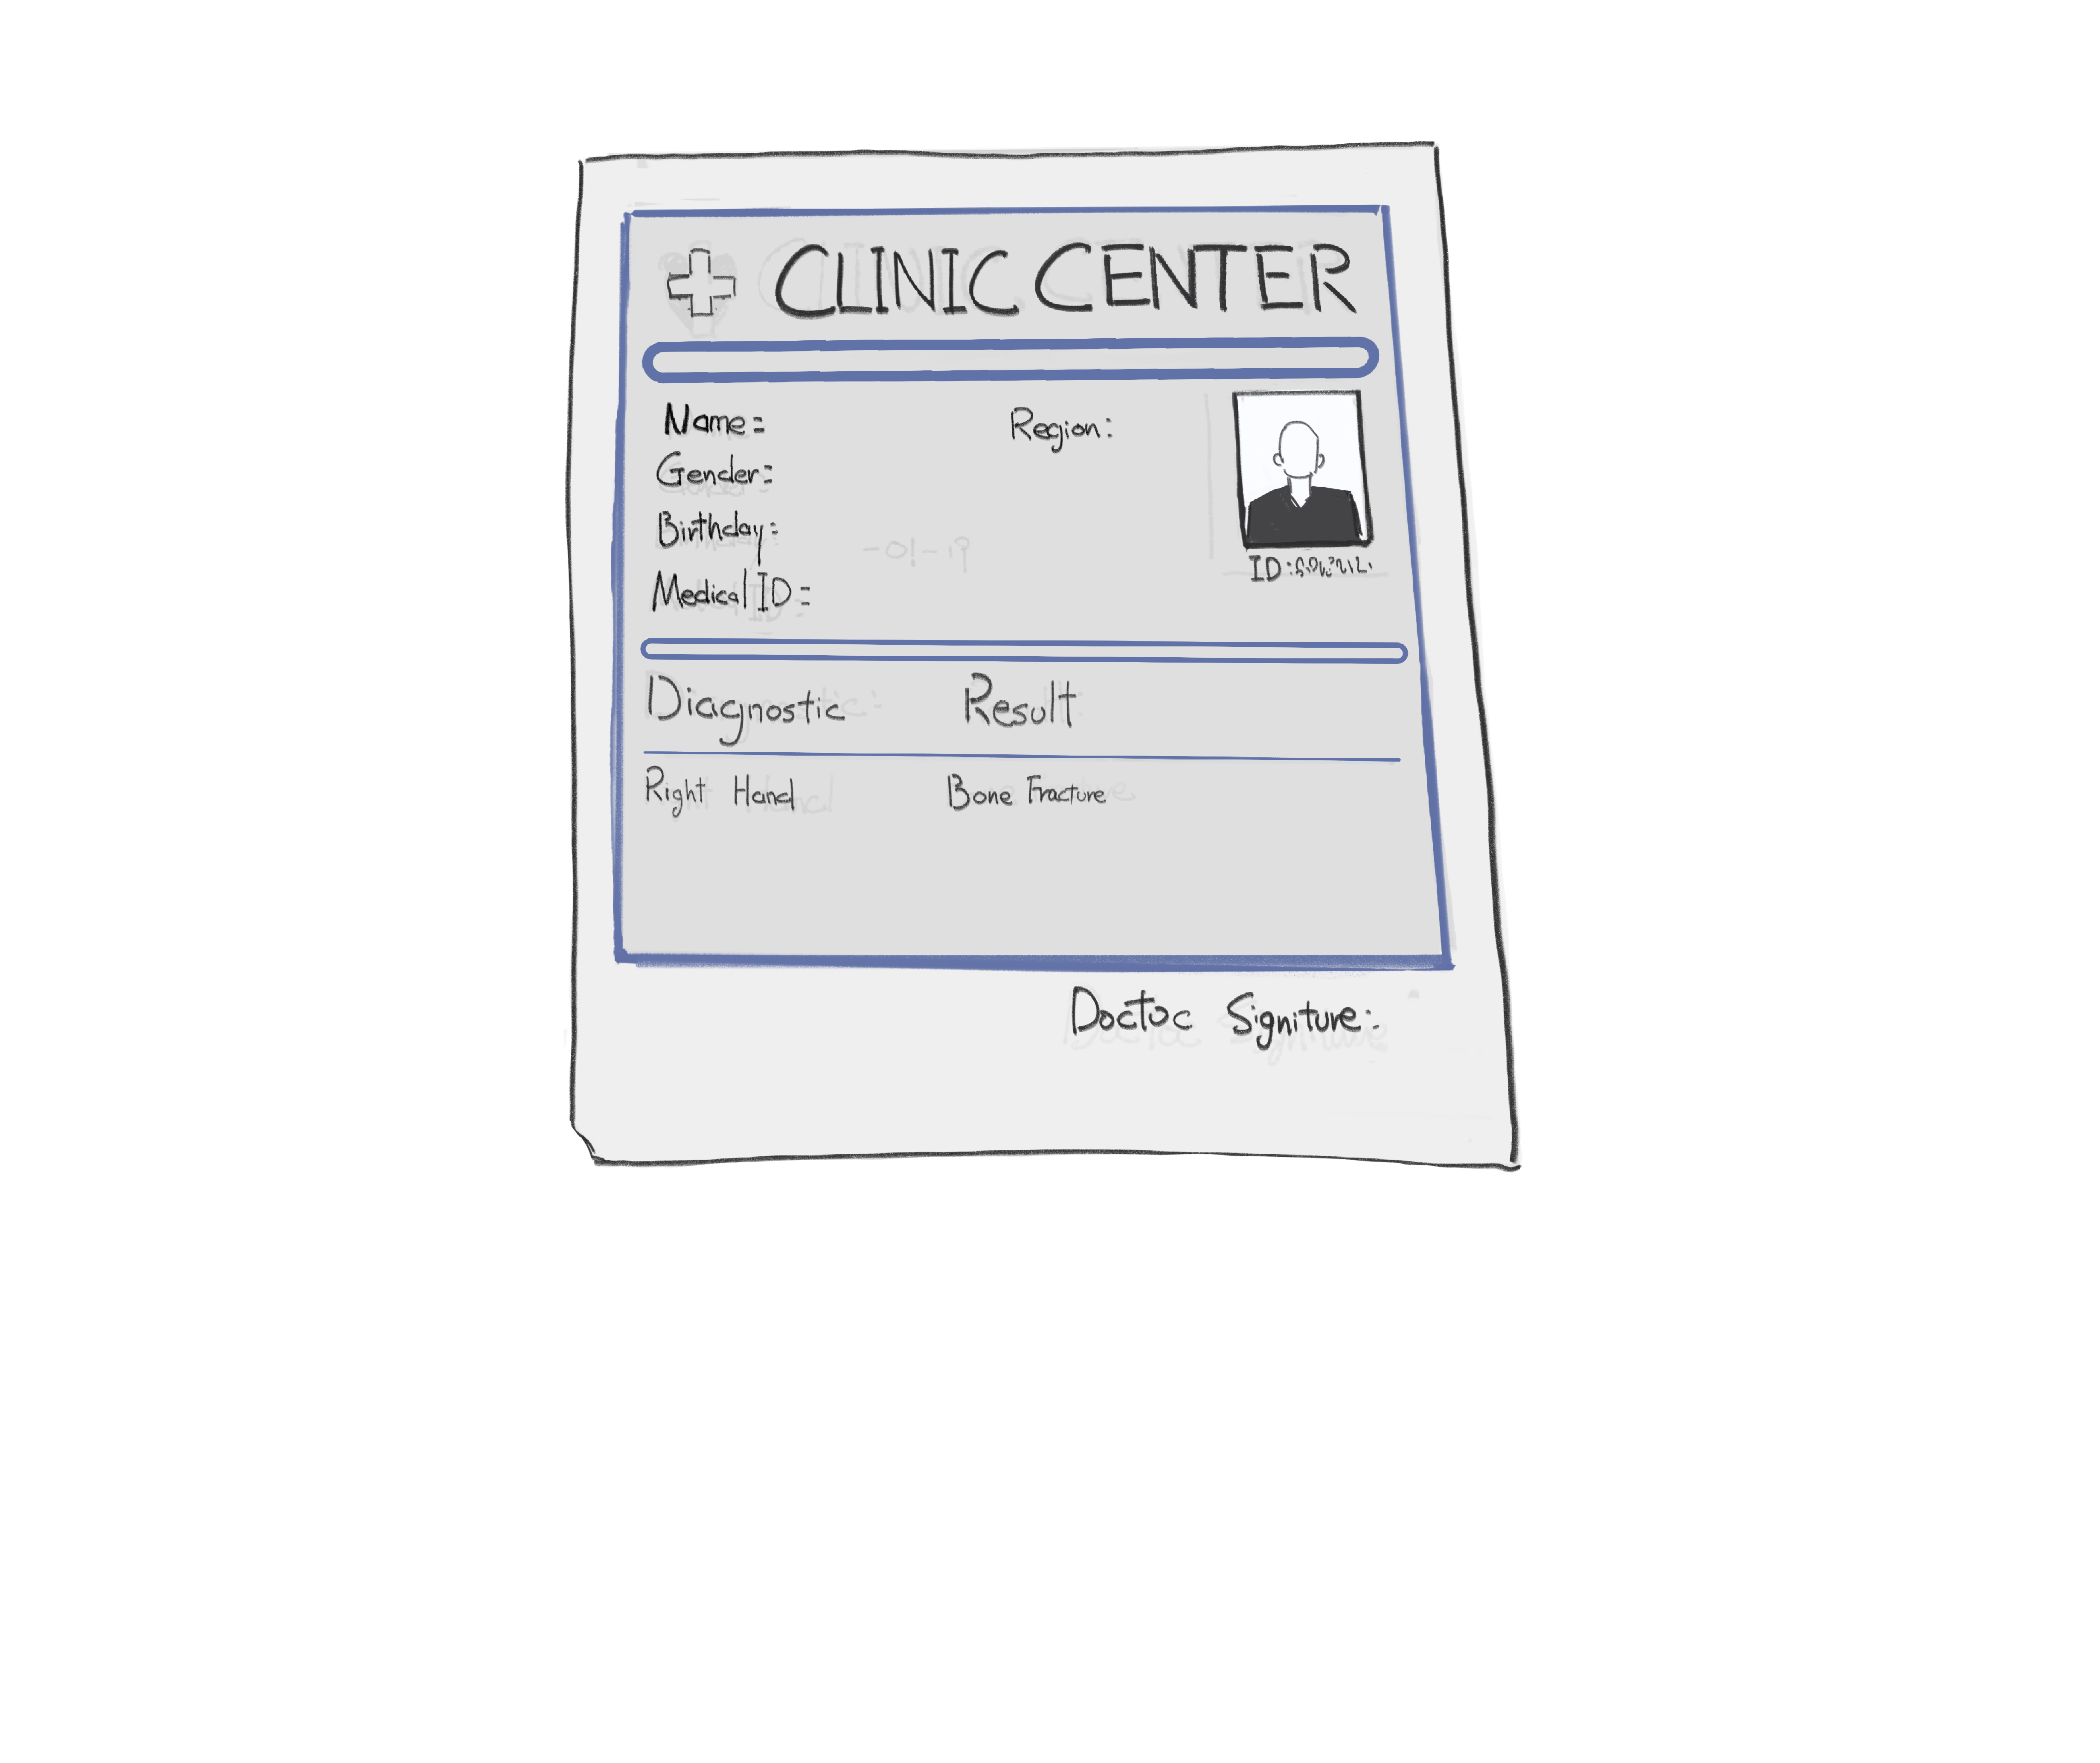 CLINIC CENTER
Name: Region:
Gender:
Birthday:
-01-19
ID:
Medical ID:
Diagnostic Result
Right Hand Bone Fracture
Doctoc Signiture: